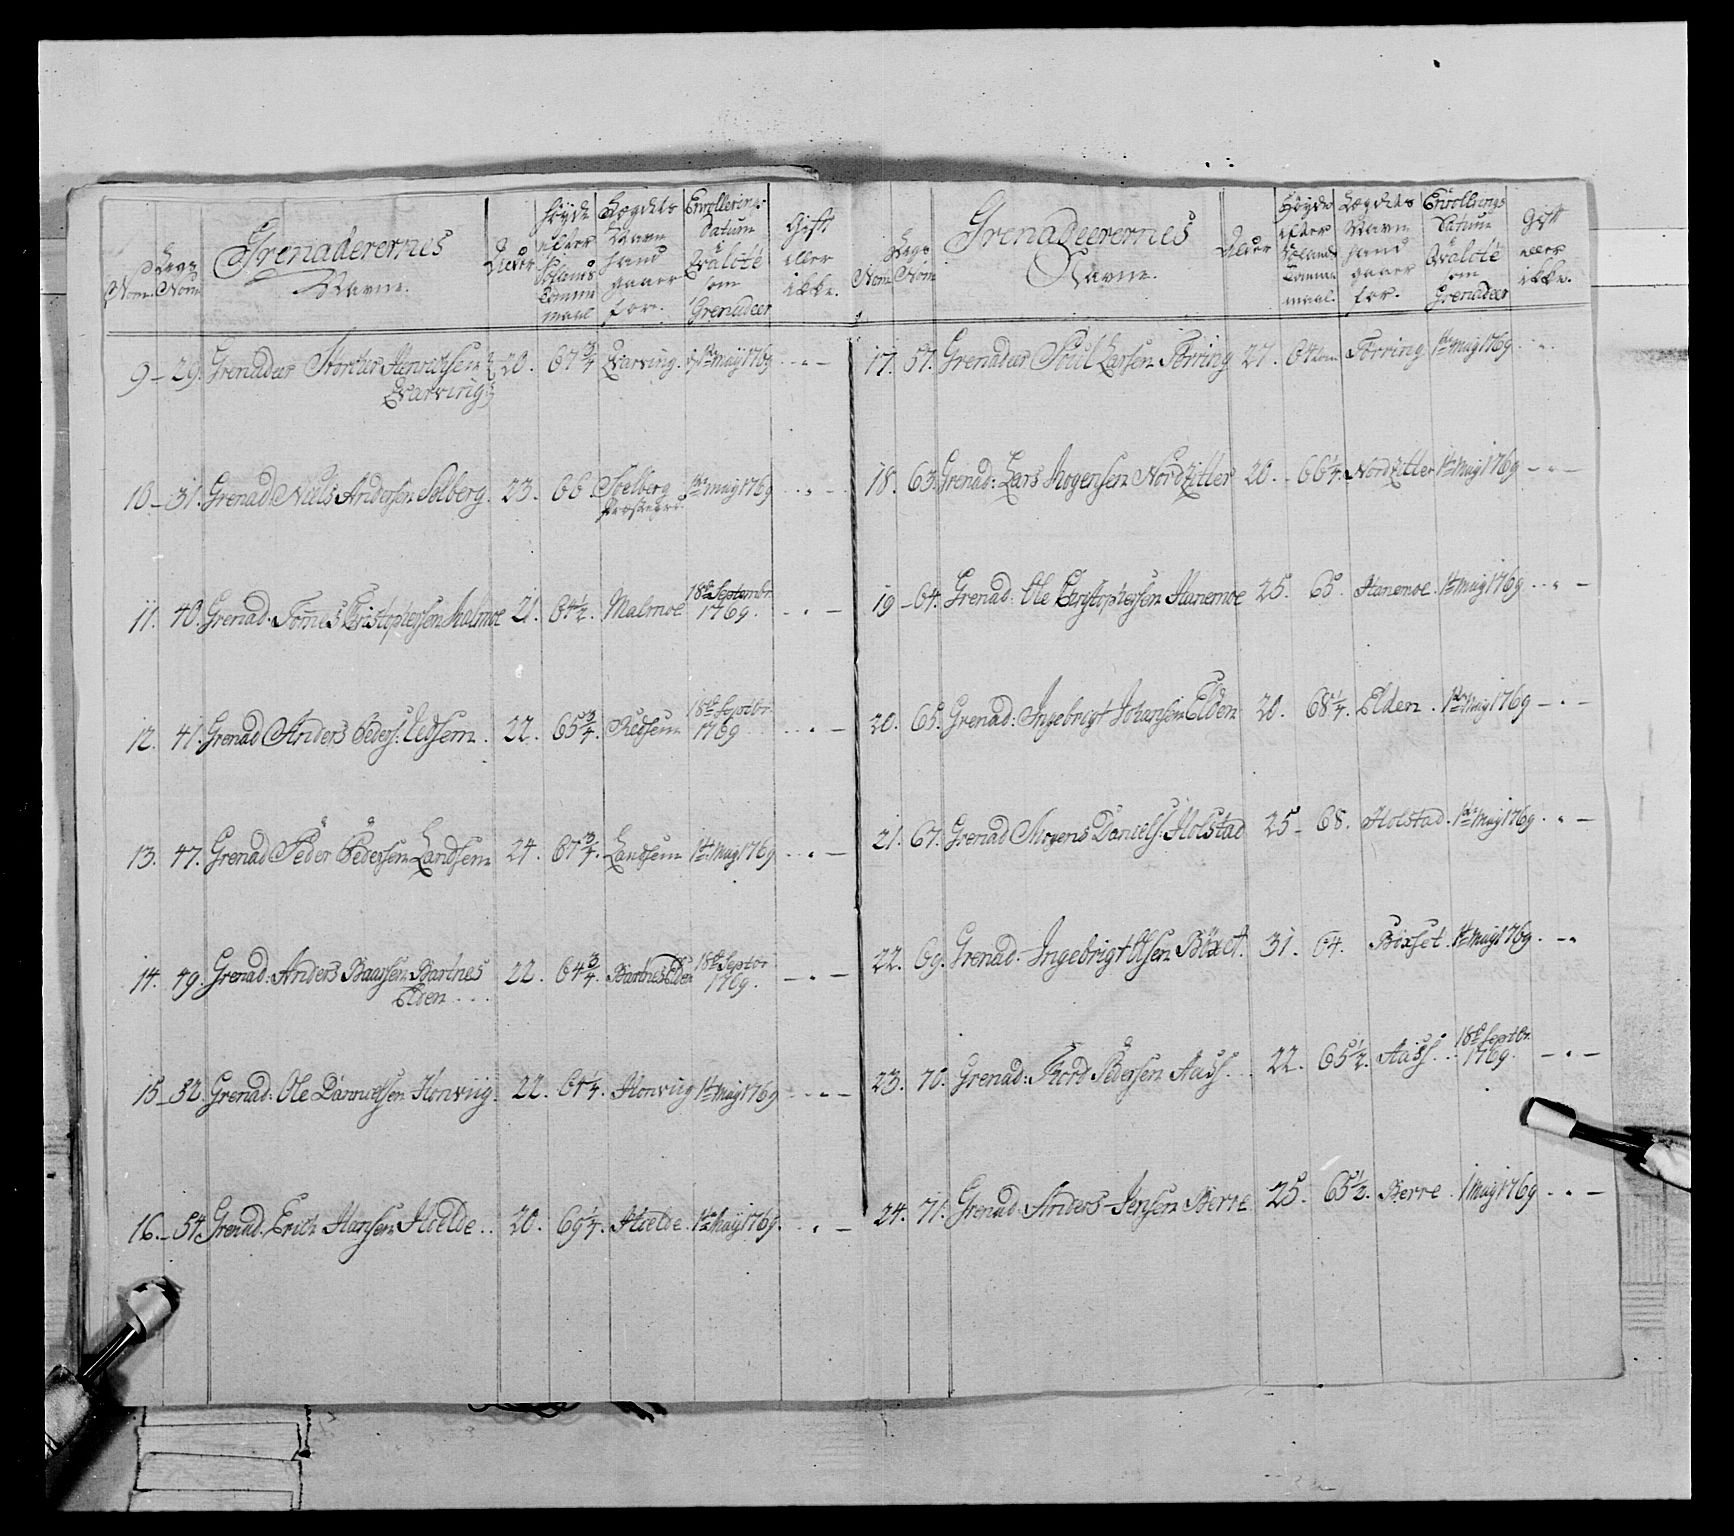 Nom.
Nom
Grenadeerernes
Navne.
Alder
Høyde
efter
Tomme
maal
Lægdets
Navn
hand
gaaer
for.
Enrollerings
Datum
som
Grenadeer
Gift
eller
ikke.
9 - 29. Grenadeer Henrichsen 20. 67 3/4 Qvarving. May 1769
Qvarving
10 - 31. Grenad. Niels Andersen Solberg. 23. 66 Soelberg May 1769
11. 40. Grenad. Christophersen Malmoe 21. 64 1/2. Malmoe 18de Septembr
1769.
12. 41. Grenad Anders Peders: 22. 65 3/4. 18de Septbr.
1769
13. 47. Grenad Peder Pedersen Landsem 24. 67 3/4. Landsem 1ste May 1769
14. 49. Grenad: Anders Baarsen Bartnes 22. 64 3/4. Bartnes Elden 18de Septbr
Elden 1769.
15 - 52. Grenad: Ole Dannielsen Honviig. 22. Honviig 1ste May 1769
16. - 54. Grenad. Erich Hansen Hoelde .. 20. 69 1/4. Hoelde. 1ste May 1769.
Nom
Nom
Grenadeerernes
Navne.
Alder
Høyde
efter
Tomme
maal.
Lægdets
Navn
hand
gaaer
for.
Enrollerings
Datum
som
Grenadeer
Gift
eller
ikke.
17. 57. Grenadeer Poul Larsen Førring 27. 64 Førring 1ste May 1769
18. 63. Grenad: Lars Mogensen 20. 66 1/4. 1ste May 1769
19 - 64. Grenad. Ole Christophersen Hanemoe 25. 65. Hanemoe. 1ste May 1769
20. 65. Grenad: Ingebrigt Johansen Elden 20. 68 1/4. Elden. 1ste May 1769
21. 67. Grenad Mogens Daniels. Holstad 25 - 68. Holstad. 1ste May 1769
22. 69. Grenad: Ingebrigt Olsen Böxet. 31. 64. Böxset. 1ste May 1769.
23. 70. Grenad: Pedersen Aass. 22. 65 1/2. Aass. 18de Septbr.
1769.
24. 71. Grenad: Anders Jensen Berre 25. 65 1/2. Berre. 1 May 1769